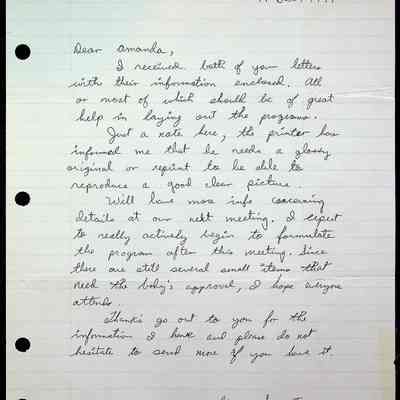 Dear Amanda,
I received both of your letters
with their information enclosed. All
or most of which should be of great
help in laying out the programs.
Just a note here, the printer has
informed me that he needs a glossy
original or reprint to be able to
reproduce a good clear picture.
Will have more info concerning
details at our next meeting. I expect
to really actively begin to formulate
the program after this meeting. Since
there are still several small items that
need the body's approval, I hope everyone
attends.
Thanks go out to you for the
information I have and please do not
hesitate to send more if you have it.